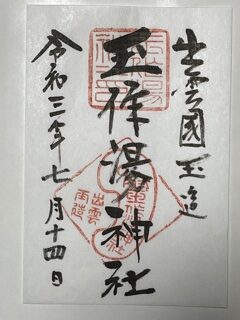 出雲國玉造
玉作湯神社
令和三年七月十四日
出雲
玉造